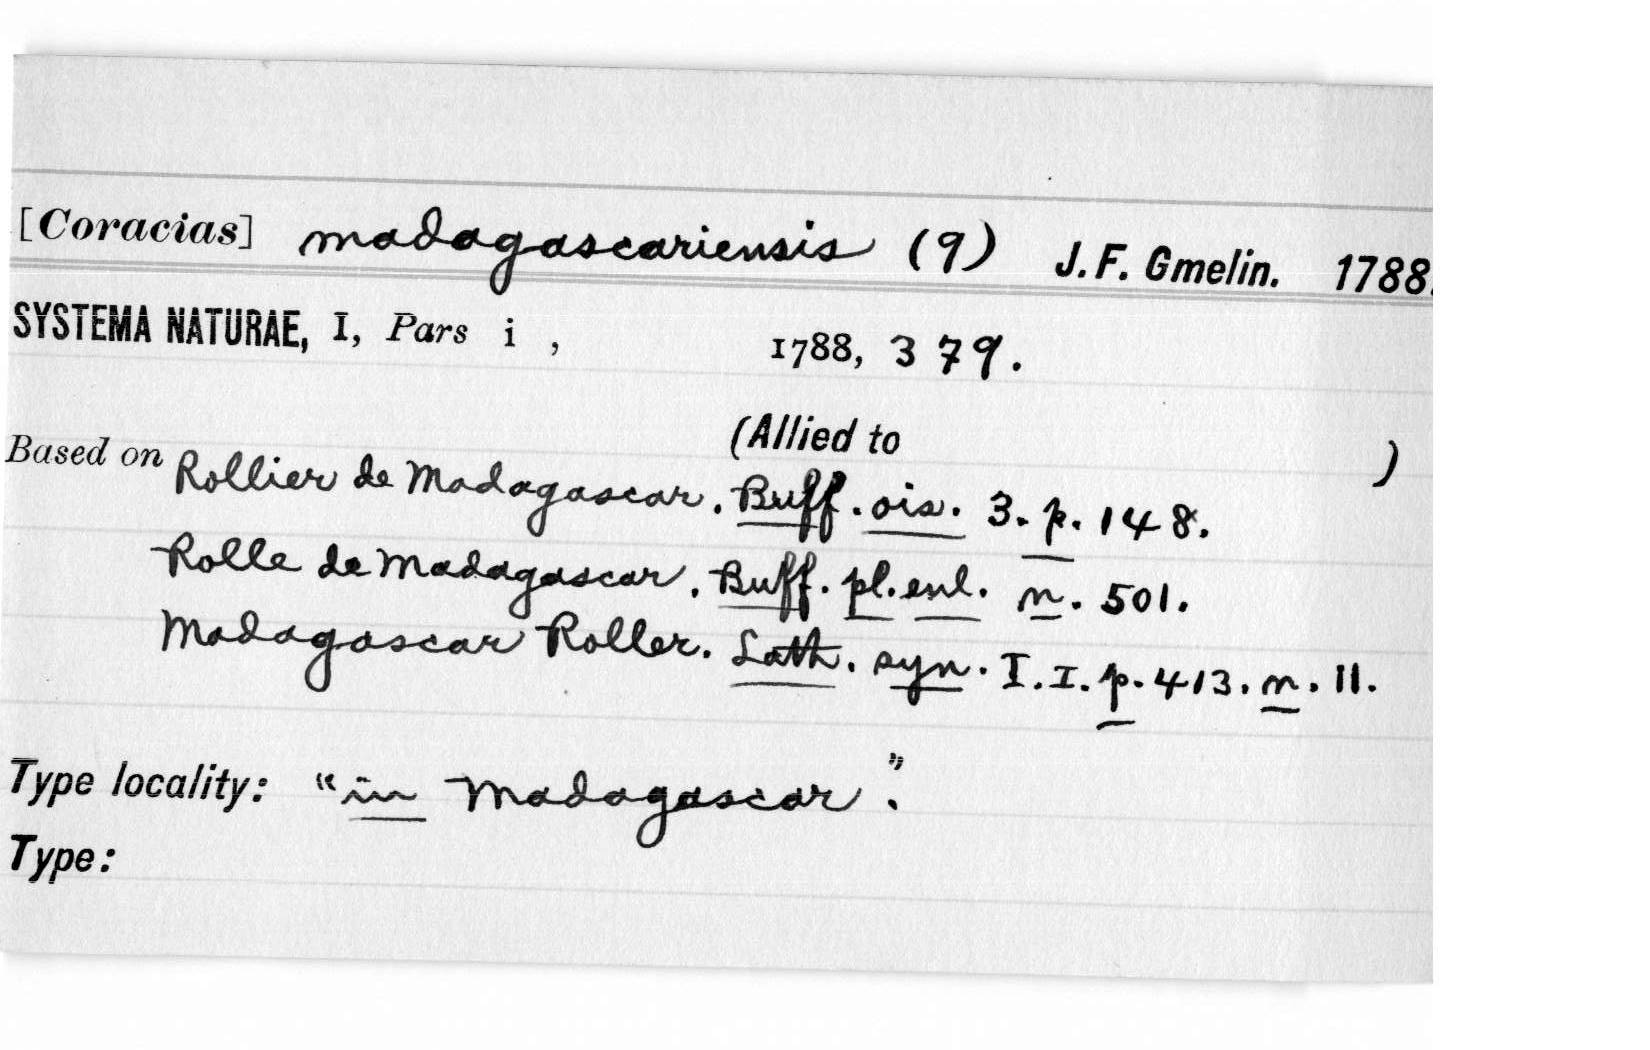 [Coracias] madagascariensis (9) J. F. Gmelin. 1788.
SYSTEMA NATURAE, I, Pars i , 1788, 379.
(Allied to )
Based on Rollier de Madagascar. Buff. ois. 3. p. 148.
Rolle de Madagascar. Buff. pl. enl. n. 501.
Madagascar Roller. Lath. syn. I. I. p. 413. n. 11.
Type locality: "in Madagascar."
Type: